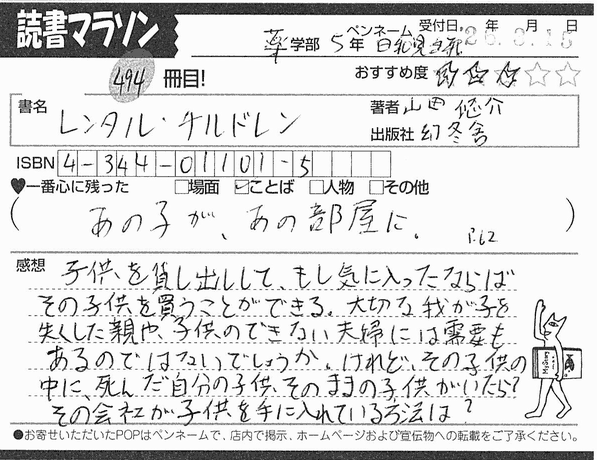 読書マラソン
薬学部 5年 ペンネーム 受付日 年 月 日
494 冊目!
おすすめ度
書名 レンタル・チルドレン
著者 山田 悠介
出版社 幻冬舎
ISBN 4-344-01101-5
♥一番心に残った □場面 ☑ことば □人物 □その他
(あの子が、あの部屋に。 P.62)
感想
子供を貸し出しして、もし気に入ったならば
その子供を買うことができる。大切な我が子を
失くした親や、子供のできない夫婦には需要も
あるのではないでしょうか。けれど、その子供の
中に、死んだ自分の子供、そのままの子供がいたら?
その会社が子供を手に入れている方法は?
●お寄せいただいたPOPはペンネームで、店内で掲示、ホームページおよび宣伝物への転載をご了承ください。